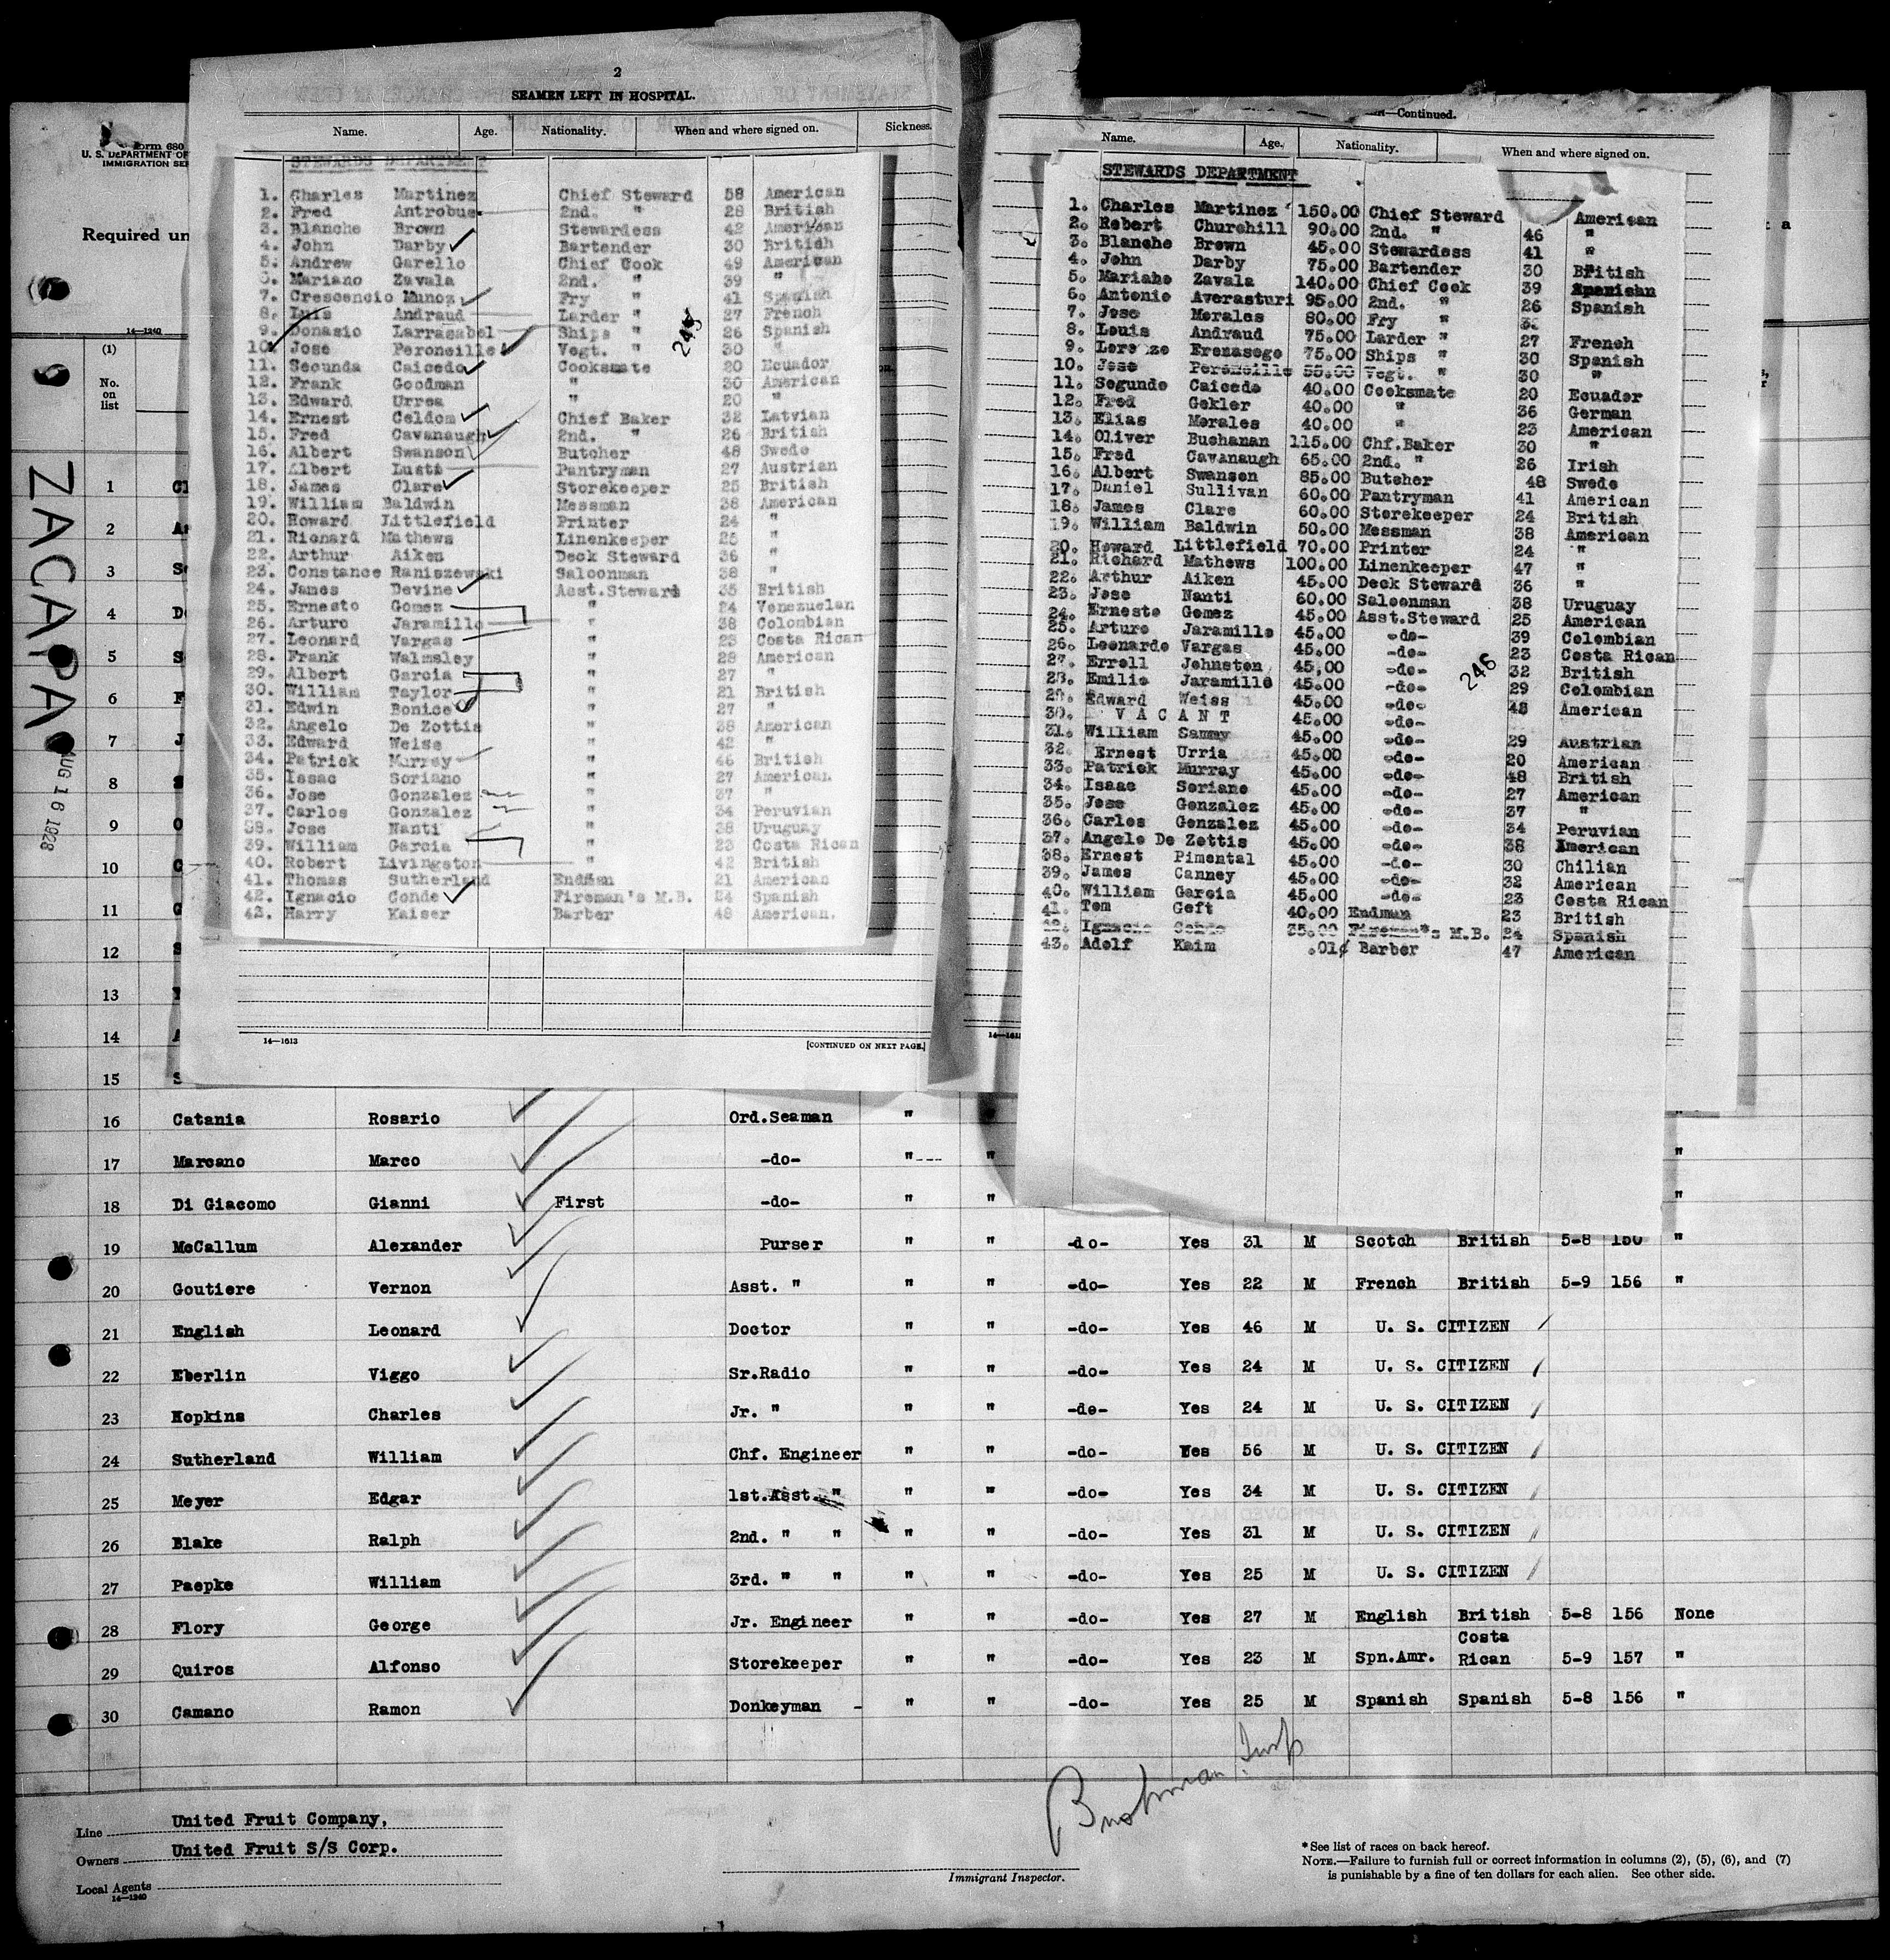 2
SEAMEN LEFT IN HOSPITAL.
Name. Age. Nationality. When and where signed on. Sickness.
STEWARDS DEPARTMENT
1. Charles Martinez Chief Steward 58 American
2. Fred Antrobus 2nd. " 28 British
3. Blanche Brown Stewardess 42 American
4. John Darby Bartender 30 British
5. Andrew Garello Chief Cook 49 American
6. Mariano Zavala 2nd. " 39 "
7. Crescencio Munoz Fry " 41 Spanish
8. Luis Andraud Larder " 27 French
9. Donasio Larrazabel Ships " 26 Spanish
10. Jose Peroneille Vegt. " 30 "
11. Secunda Caicedo Cooksmate 20 Ecuador
12. Frank Goodman " 30 American
13. Edward Urrea " 20 "
14. Ernest Celdom Chief Baker 32 Latvian
15. Fred Cavanaugh 2nd. " 26 British
16. Albert Swanson Butcher 48 Swede
17. Albert Lusti Pantryman 27 Austrian
18. James Clare Storekeeper 25 British
19. William Baldwin Messman 38 American
20. Howard Littlefield Printer 24 "
21. Richard Mathews Linenkeeper 25 "
22. Arthur Aiken Deck Steward 36 "
23. Constance Raniszewski Saloonman 38 "
24. James Devine Asst.Steward 35 British
25. Ernesto Gomez " 24 Venezuelan
26. Arturo Jaramillo " 38 Colombian
27. Leonard Vargas " 23 Costa Rican
28. Frank Walmsley " 28 American
29. Albert Garcia " 27 "
30. William Taylor " 21 British
31. Edwin Bonice " 27 "
32. Angelo De Zottis " 38 American
33. Edward Weise " 42 "
34. Patrick Murray " 46 British
35. Issac Soriano " 27 American
36. Jose Gonzalez " 37 "
37. Carlos Gonzalez " 34 Peruvian
38. Jose Nanti " 38 Uruguay
39. William Garcia " 23 Costa Rican
40. Robert Livingston " 42 British
41. Thomas Sutherland Endman 21 American
42. Ignacio Conde Fireman's M.B. 24 Spanish
43. Harry Kaiser Barber 48 American.
14—1613
[CONTINUED ON NEXT PAGE.]
—Continued.
Name. Age. Nationality. When and where signed on.
STEWARDS DEPARTMENT
1. Charles Martinez 150.00 Chief Steward American
2. Robert Churchill 90.00 2nd. " 46 "
3. Blanche Brown 45.00 Stewardess 41 "
4. John Darby 75.00 Bartender 30 British
5. Mariano Zavala 140.00 Chief Cook 39
6. Antonio Averasturi 95.00 2nd. " 26 Spanish
7. Jose Morales 80.00 Fry "
8. Louis Andraud 75.00 Larder " 27 French
9. Lorenzo Erenasego 75.00 Ships " 30 Spanish
10. Jose Peroneille 55.00 Vegt. " 30 "
11. Segundo Caicedo 40.00 Cooksmate 20 Ecuador
12. Fred Gekler 40.00 " 36 German
13. Elias Morales 40.00 " 23 American
14. Oliver Buchanan 115.00 Chf.Baker 30 "
15. Fred Cavanaugh 65.00 2nd. " 26 Irish
16. Albert Swansen 85.00 Butcher 48 Swede
17. Daniel Sullivan 60.00 Pantryman 41 American
18. James Clare 60.00 Storekeeper 24 British
19. William Baldwin 50.00 Messman 38 American
20. Howard Littlefield 70.00 Printer 24 "
21. Richard Mathews 100.00 Linenkeeper 47 "
22. Arthur Aiken 45.00 Deck Steward 36 "
23. Jose Nanti 60.00 Saloonman 38 Uruguay
24. Ernesto Gomez 45.00 Asst.Steward 25 American
25. Arturo Jaramillo 45.00 -do- 39 Colombian
26. Leonardo Vargas 45.00 -do- 23 Costa Rican
27. Erroll Johnston 45.00 -do- 32 British
28. Emilio Jaramillo 45.00 -do- 29 Colombian
29. Edward Weiss 45.00 -do- 48 American
30. V A C A N T 45.00 -do-
31. William Sammy 45.00 -do- 29 Austrian
32. Ernest Urria 45.00 -do- 20 American
33. Patrick Murray 45.00 -do- 48 British
34. Isaac Soriano 45.00 -do- 27 American
35. Jose Gonzalez 45.00 -do- 37 "
36. Carlos Gonzalez 45.00 -do- 34 Peruvian
37. Angelo De Zottis 45.00 -do- 38 American
38. Ernest Pimental 45.00 -do- 30 Chilian
39. James Canney 45.00 -do- 32 American
40. William Garcia 45.00 -do- 23 Costa Rican
41. Tom Goft 40.00 Endman 23 British
42. Ignacio Conde 35.00 Fireman's M.B. 24 Spanish
43. Adolf Kaim .01¢ Barber 47 American
246
Form 680
U. S. DEPARTMENT OF
IMMIGRATION SE
Required un
14—1240
(1)
No. on list
ZACAPA
AUG 16 1928
1
2
3
4
5
6
7
8
9
10
11
12
13
14
15
16 Catania Rosario Ord.Seaman "
17 Marcano Marco -do- " " "
18 Di Giacomo Gianni First -do- " " "
19 McCallum Alexander Purser " " -do- Yes 31 M Scotch British 5-8 150 "
20 Goutiere Vernon Asst. " " " -do- Yes 22 M French British 5-9 156 "
21 English Leonard Doctor " " -do- Yes 46 M U. S. CITIZEN
22 Eberlin Viggo Sr.Radio " " -do- Yes 24 M U. S. CITIZEN
23 Hopkins Charles Jr. " " " -do- Yes 24 M U. S. CITIZEN
24 Sutherland William Chf. Engineer " " -do- Yes 56 M U. S. CITIZEN
25 Meyer Edgar 1st.Asst. " " " -do- Yes 34 M U. S. CITIZEN
26 Blake Ralph 2nd. " " " " -do- Yes 31 M U. S. CITIZEN
27 Paepke William 3rd. " " " " -do- Yes 25 M U. S. CITIZEN
28 Flory George Jr. Engineer " " -do- Yes 27 M English British 5-8 156 None
29 Quiros Alfonso Storekeeper " " -do- Yes 23 M Spn.Amr. Costa Rican 5-9 157 "
30 Camano Ramon Donkeyman - " " -do- Yes 25 M Spanish Spanish 5-8 156 "
Line United Fruit Company,
Owners United Fruit S/S Corp.
Local Agents
14—1240
Immigrant Inspector.
* See list of races on back hereof.
NOTE.—Failure to furnish full or correct information in columns (2), (5), (6), and (7)
is punishable by a fine of ten dollars for each alien. See other side.